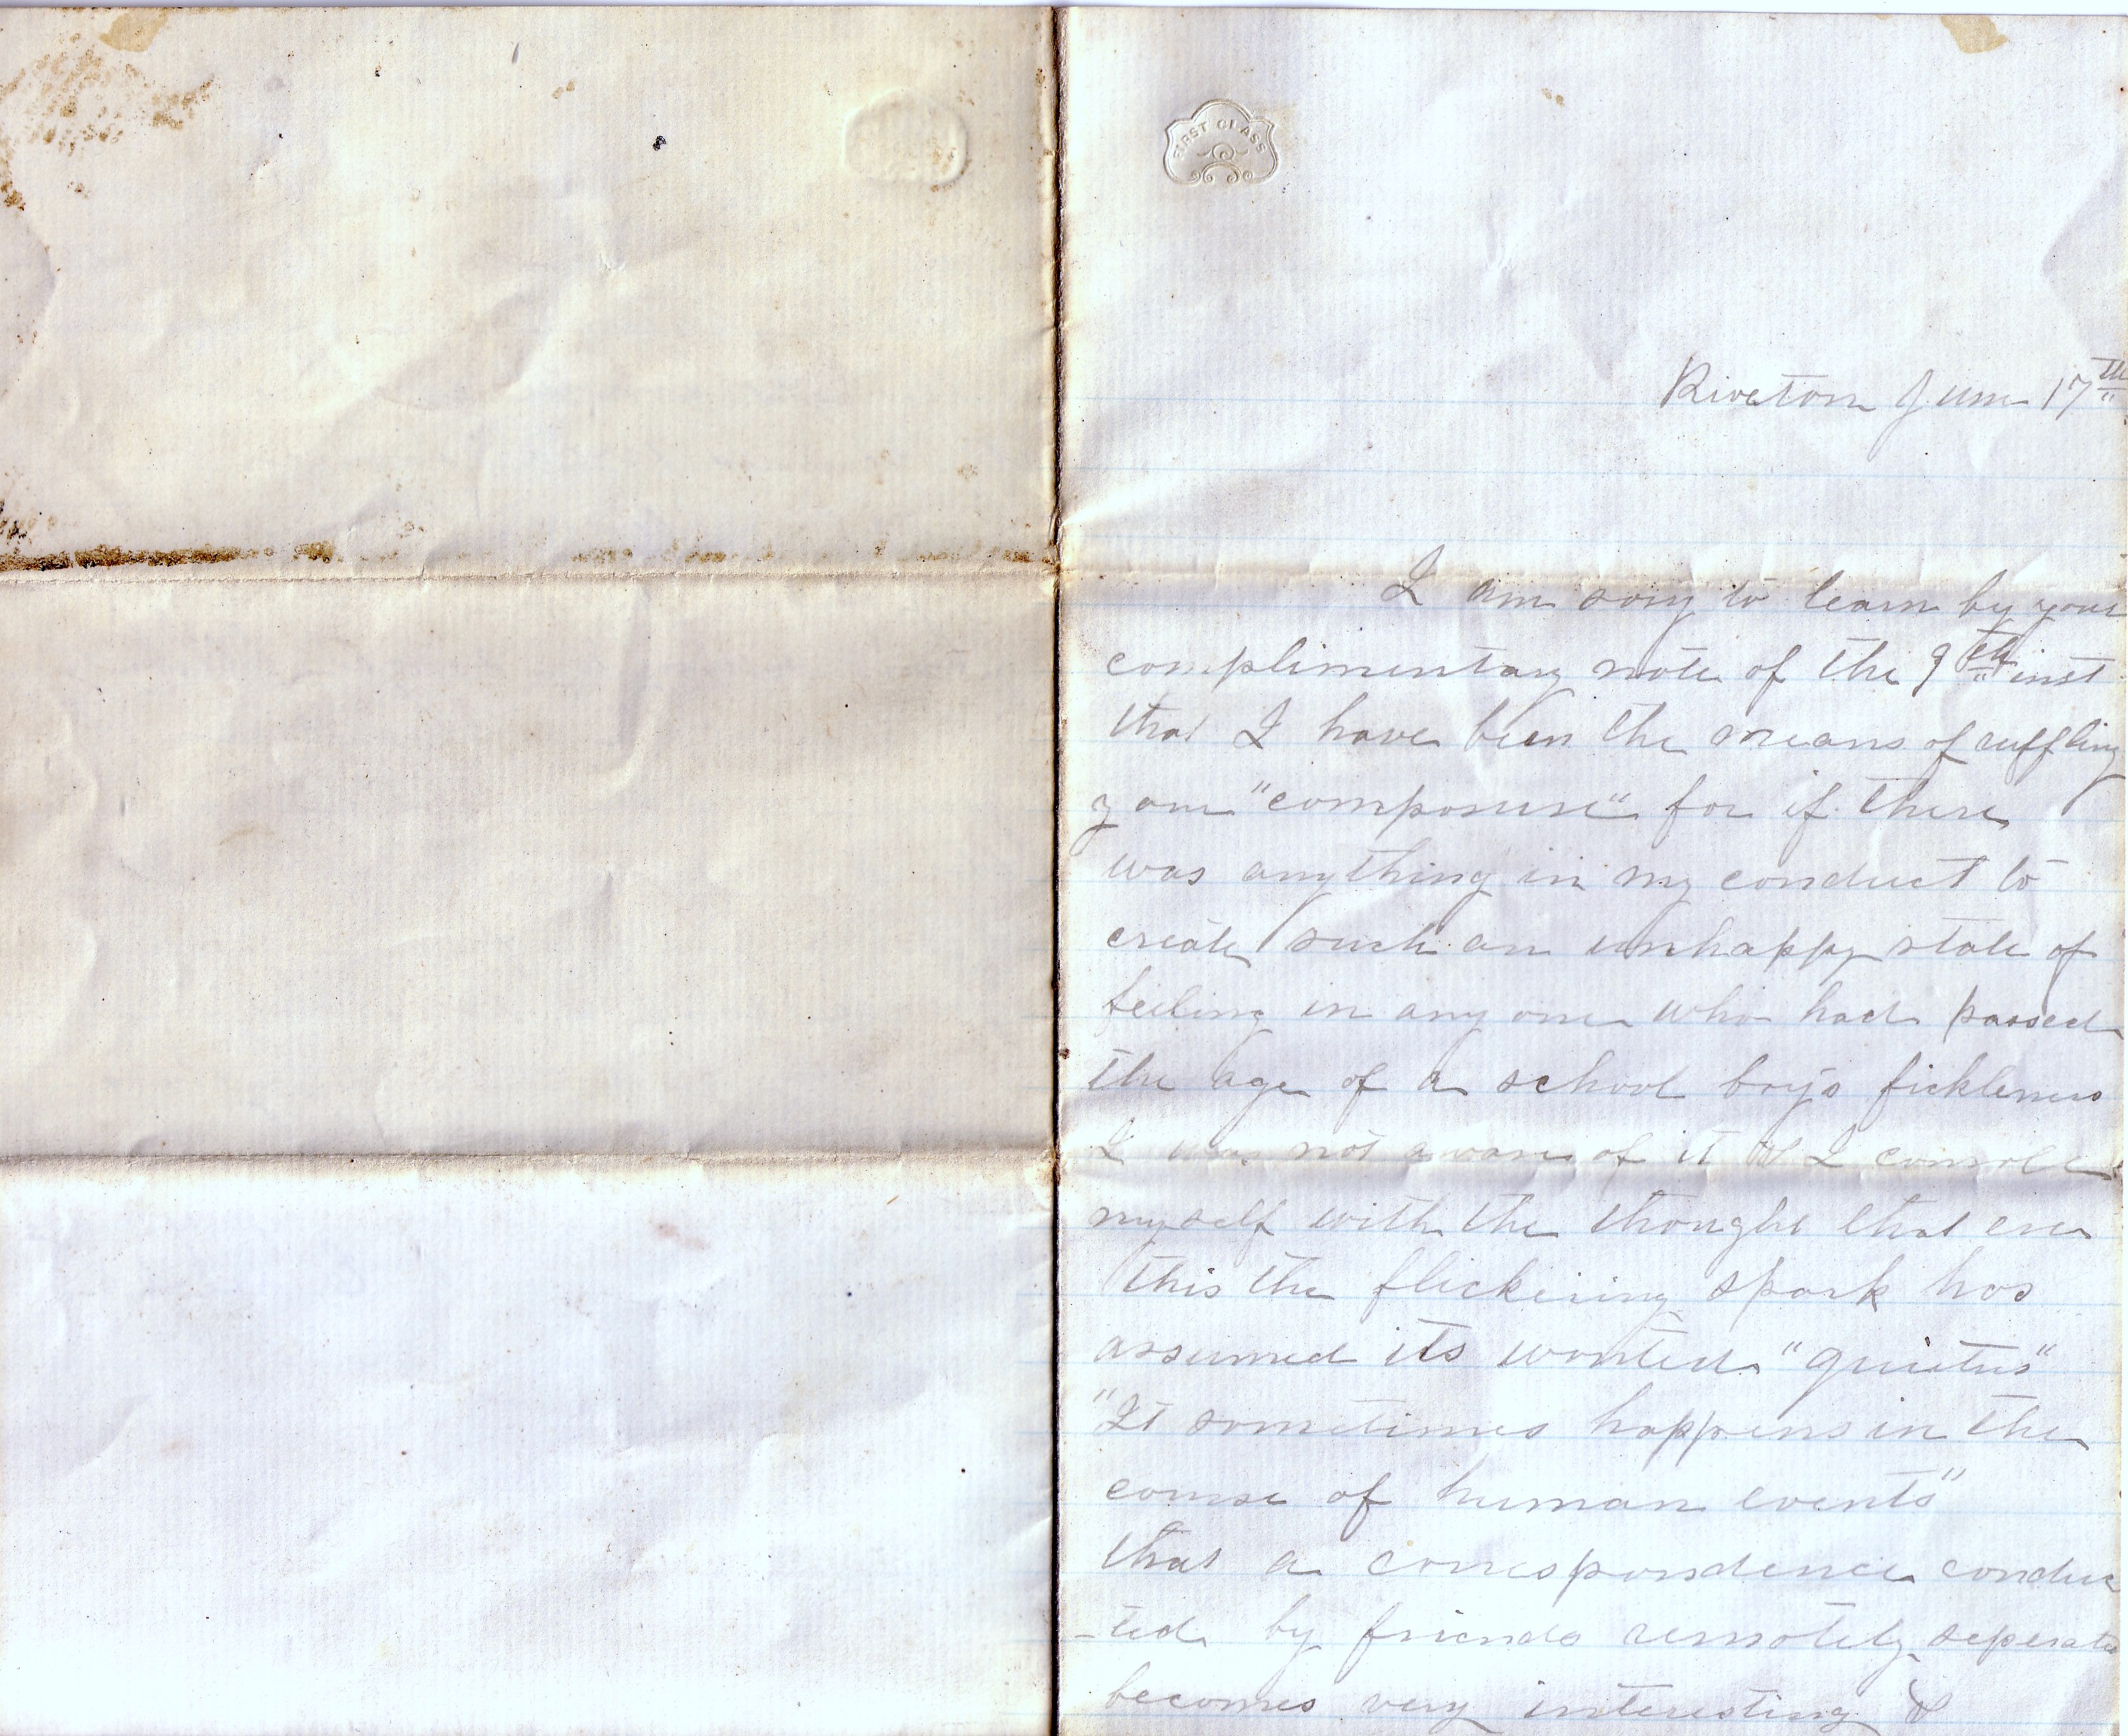 FIRST CLASS
Riverton June 17th
I am sory to learn by your
complimentary note of the 9th inst
that I have been the means of ruffling
your "composure" for if there
was anything in my conduct to
create such an unhappy state of
feeling in any one who had passed
the age of a school boy's fickleness
I was not aware of it & I console
myself with the thought that ere
this the flickering spark has
assumed its wonted "quietus"
"It sometimes happens in the
course of human events"
that a correspondence conduc
-ted by friends remotely seperated
becomes very interesting &